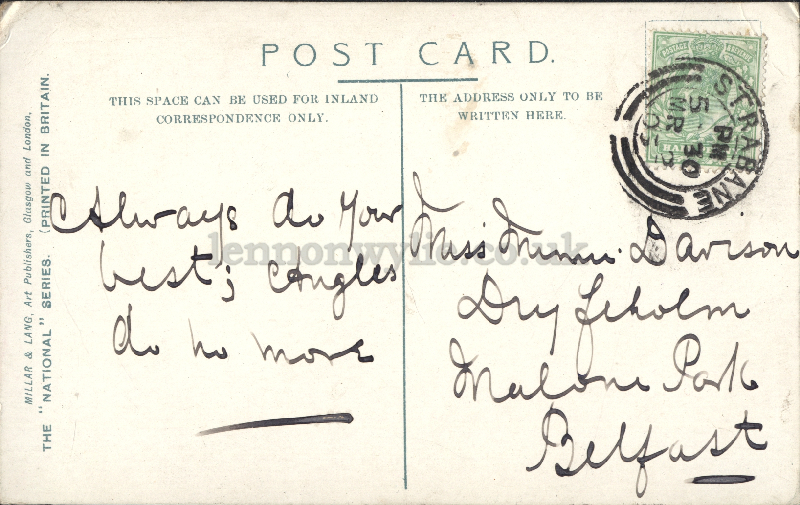 POST CARD.
THIS SPACE CAN BE USED FOR INLAND
CORRESPONDENCE ONLY.
THE ADDRESS ONLY TO BE
WRITTEN HERE.
MILLAR & LANG, Art Publishers, Glasgow and London.
THE "NATIONAL" SERIES. (PRINTED IN BRITAIN.
STRABANE
5 PM
MR 30
POSTAGE
Always do your
best; Angles
do no more
Miss Minni Davison
Malone Park
Belfast
lennonwylie.co.uk